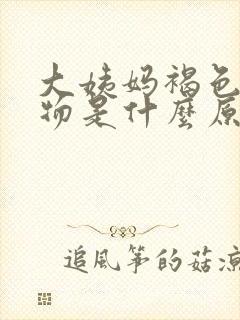 大姨妈褐色
物是什麼原
追風筝的菇凉